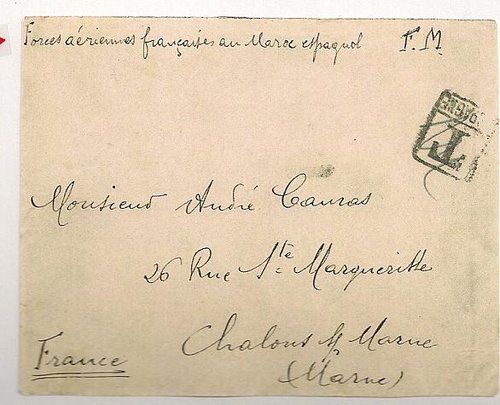 Forces aériennes françaises au Maroc espagnol F.M
T
Monsieur André Cauras
26 Rue Ste Margueritte
Chalons s/ Marne
(Marne)
France